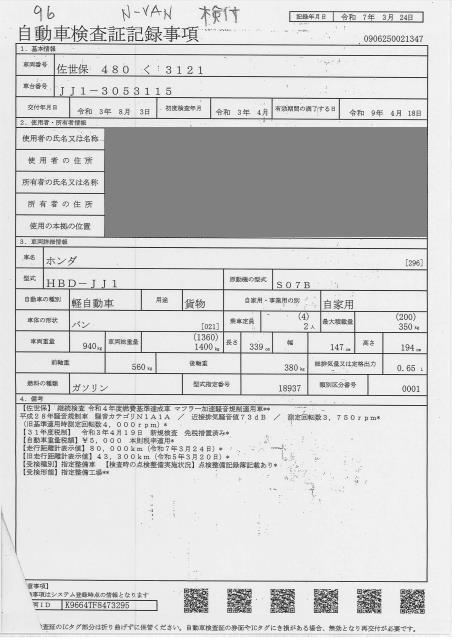 96 N-VAN 検付
記録年月日 令和 7年 3月 24日
自動車検査証記録事項
0906250021347
1．基本情報
車両番号 佐世保 480 く 3121
車台番号 JJ1-3053115
交付年月日 令和 3年 8月 3日 初度検査年月 令和 3年 4月 有効期間の満了する日 令和 9年 4月 18日
2．使用者・所有者情報
使用者の氏名又は名称
使用者の住所
所有者の氏名又は名称
所有者の住所
使用の本拠の位置
3．車両詳細情報
車名 ホンダ [296]
型式 HBD-JJ1 原動機の型式 S07B
自動車の種別 軽自動車 用途 貨物 自家用・事業用の別 自家用
車体の形状 バン [021] 乗車定員 (4) 2人 最大積載量 (200) 350kg
車両重量 940kg 車両総重量 (1360) 1400kg 長さ 339cm 幅 147cm 高さ 194cm
前軸重 560kg 後軸重 380kg 総排気量又は定格出力 0.65L
燃料の種類 ガソリン 型式指定番号 18937 類別区分番号 0001
4．備考
【佐世保】 継続検査 令和4年度燃費基準達成車 マフラー加速騒音規制適用車**
平成28年騒音規制車 騒音カテゴリN1A1A ／ 近接排気騒音値73dB ／ 測定回転数3，750rpm*
(旧基準適用時測定回転数4，000rpm)*
【31年度税制】 令和3年4月19日 新規検査 免税措置済み*
【自動車重量税額】¥5，000 本則税率適用*
【走行距離計表示値】80，000km（令和7年3月24日）*
【旧走行距離計表示値】43，300km（令和5年3月20日）*
【受検種別】指定整備車 【検査時の点検整備実施状況】点検整備記録簿記載あり*
【受検形態】指定整備工場**
意事項】
事項はシステム登録時点の情報となります
両ID K9664TF8473295
査証のICタグ部分は折り曲げずに保管ください。自動車検査証の券面やICタグにき損がある場合、無効となり再交付が必要です。